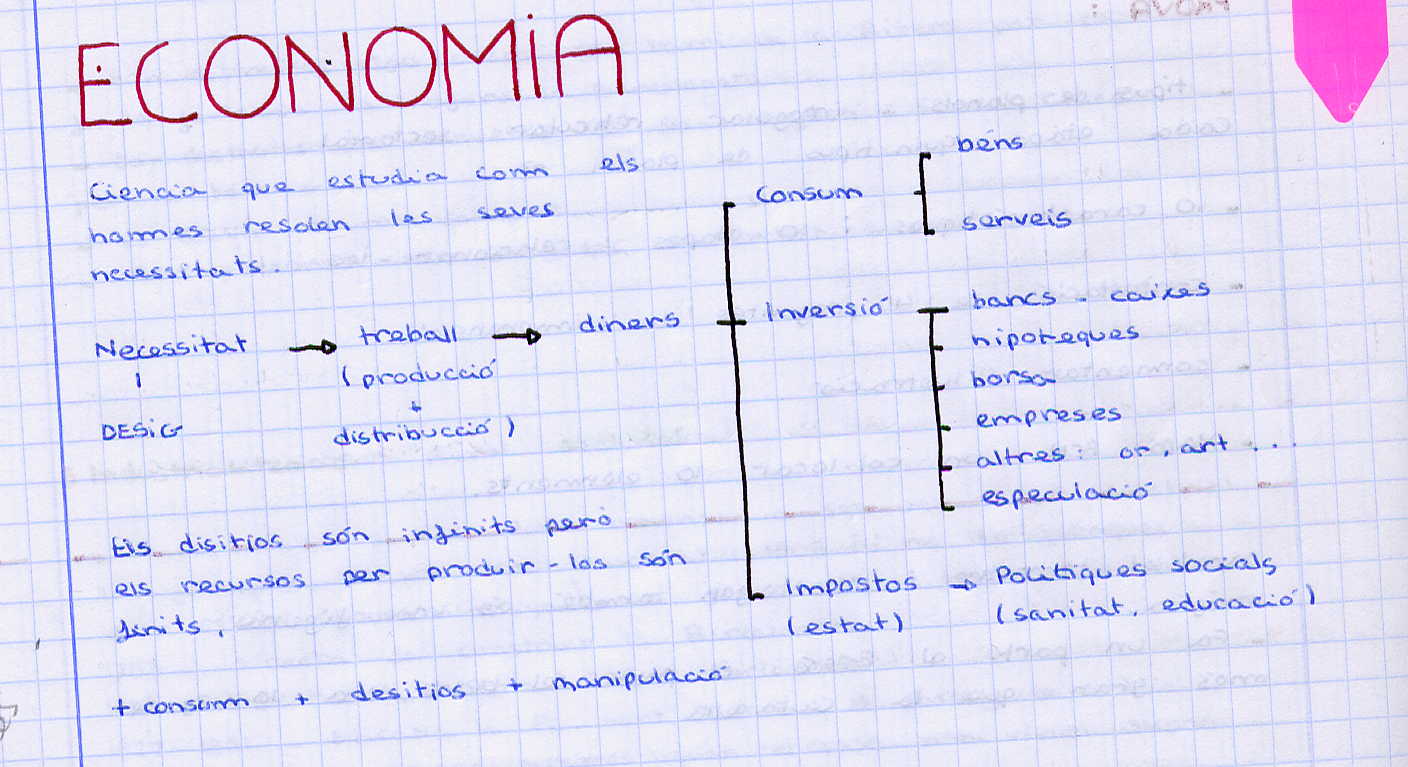 ECONOMIA
Ciencia que estudia com els
homes resolen les seves
necessitats.
Necessitat → treball → diners
(producció
+
distribucció)
DESiG
Consum
béns
serveis
Inversió
bancs - caixes
hipoteques
borsa
empreses
altres: or, art ...
especulació
Impostos → Politiques socials
(estat) (sanitat, educació)
Els disitjos són infinits peró
els recursos per produir-los són
finits.
+ consum + desitjos + manipulació